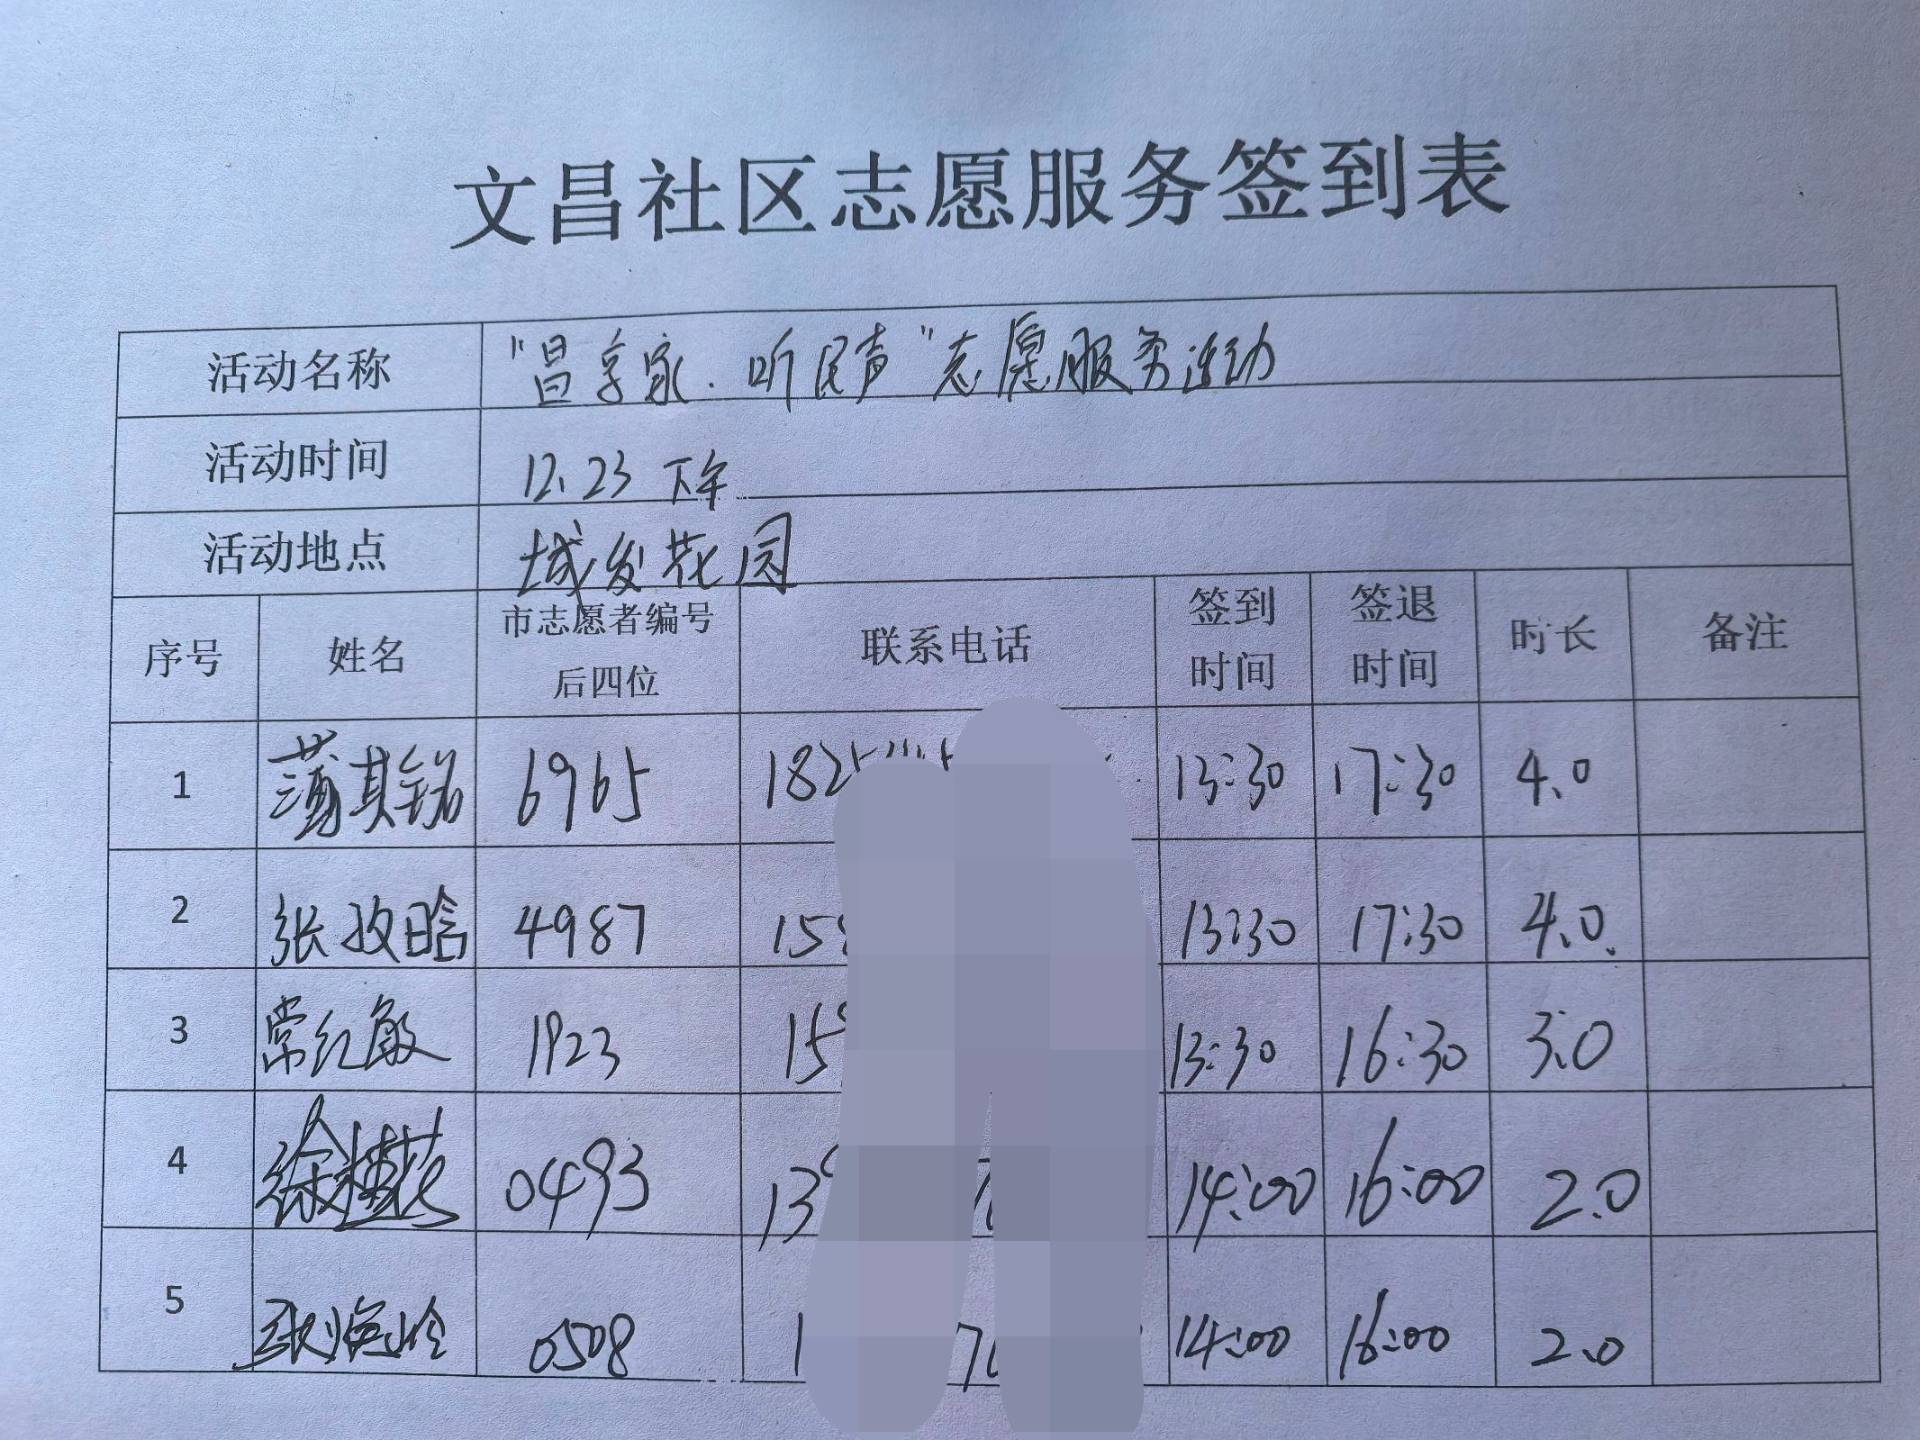 文昌社区志愿服务签到表
活动名称 "昌享家.听民声"志愿服务活动
活动时间 12.23 下午
活动地点 城发花园
序号 姓名 市志愿者编号后四位 联系电话 签到时间 签退时间 时长 备注
1 蒲其铭 6965 182 13:30 17:30 4.0
2 张玫晗 4987 15 13:30 17:30 4.0
3 常红敏 1923 15 13:30 16:30 3.0
4 徐 花 0493 13 14:00 16:00 2.0
5 0508 1 14:00 16:00 2.0